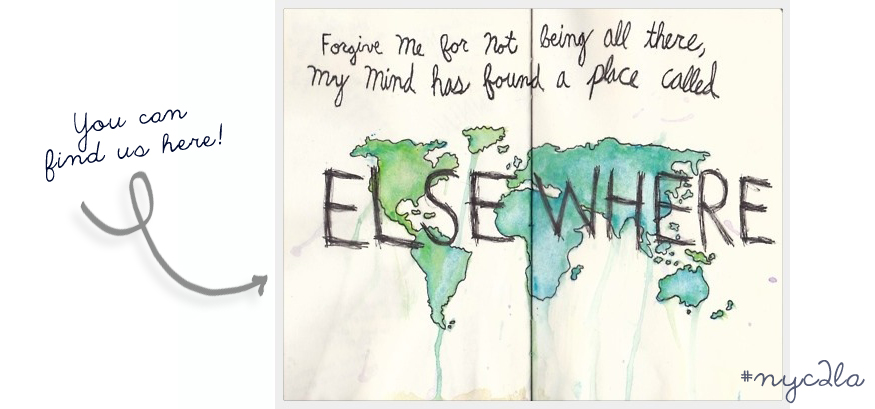 You can
find us here!
Forgive Me for Not being all there,
My Mind has found a place called
ELSEWHERE
#nyc2la